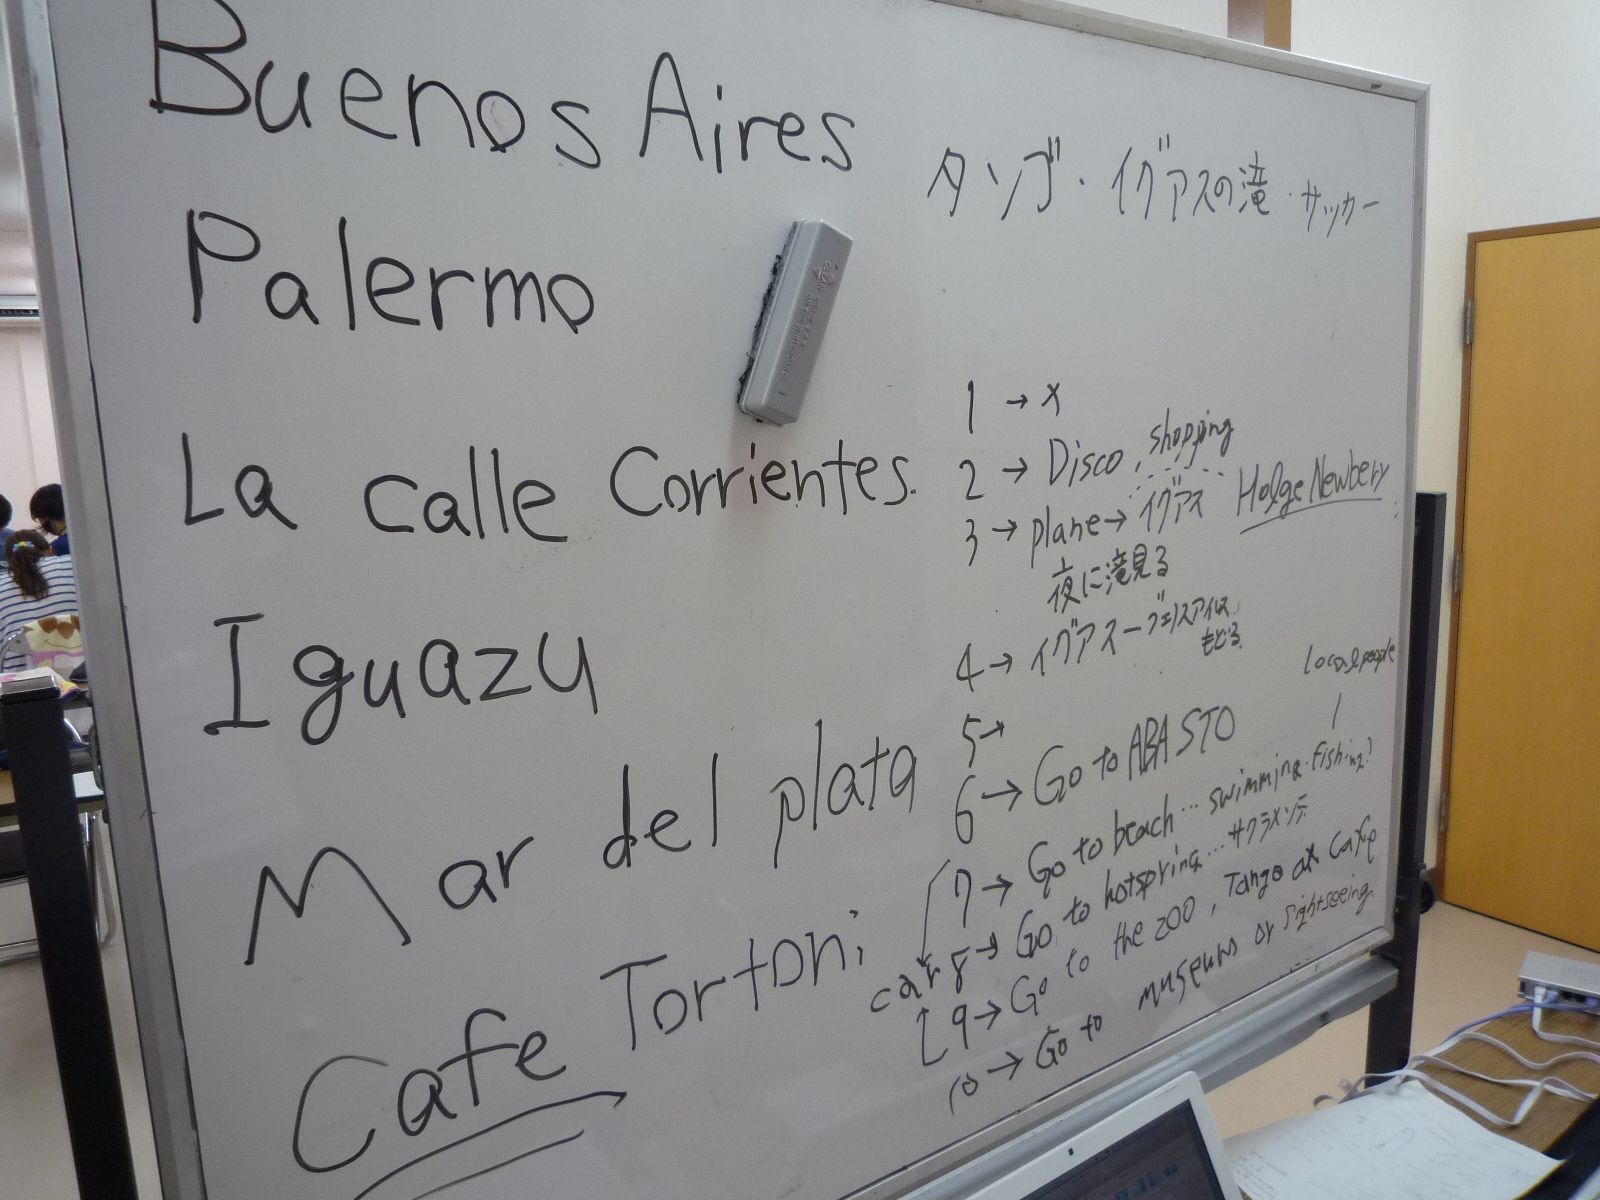 Buenos Aires
Palermo
La calle Corrientes.
Iguazu
Mar del plata
Cafe Tortoni
タンゴ・イグアスの滝・サッカー
1 → x
2 → Disco, shopping
3 → plane → イグアス Holge Newbery
夜に滝見る
4 → イグアス ー ブエノスアイレス
もどる
5 →
6 → Go to ABASTO
local people
7 → Go to beach … swimming・fishing?
car 8 → Go to hotspring … サクラメンテ
9 → Go to the zoo, Tango at Cafe
10 → Go to museums or sightseeing.